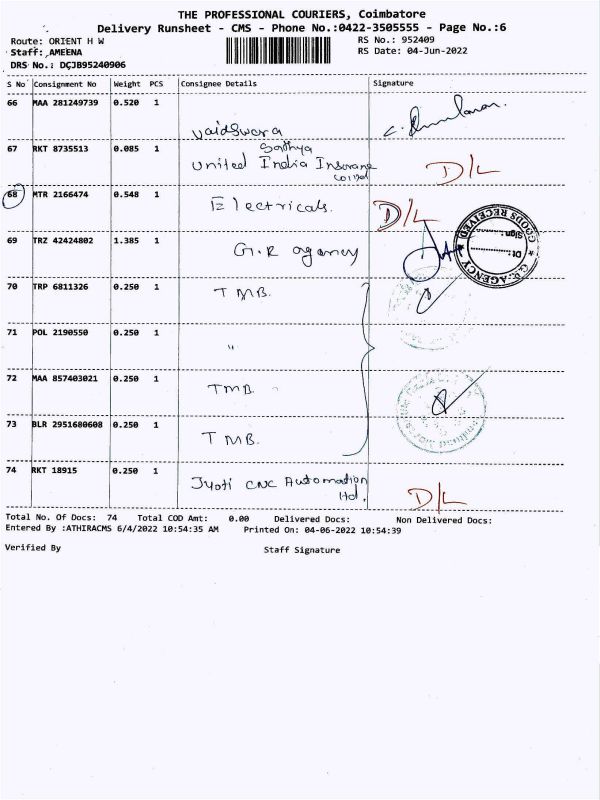 THE PROFESSIONAL COURIERS, Coimbatore
Delivery Runsheet - CMS - Phone No.:0422-3505555 - Page No.:6
Route: ORIENT H W RS No.: 952409
Staff: ,AMEENA RS Date: 04-Jun-2022
DRS No.: DCJB95240906
S No Consignment No Weight PCS Consignee Details Signature
66 MAA 281249739 0.520 1
Vaidswara
67 RKT 8735513 0.085 1 Sathya
United India Insurance D/L
68 MTR 2166474 0.548 1 Electricals. D/L
69 TRZ 42424802 1.385 1 G.R agency
G.R. AGENCY
GOODS RECEIVED
Dt:
Sign:
70 TRP 6811326 0.250 1 TMB.
71 POL 2190550 0.250 1 "
72 MAA 857403021 0.250 1 TMB.
73 BLR 2951680608 0.250 1 TMB.
74 RKT 18915 0.250 1 Jyoti CNC Automation
ltd. D/L
Total No. Of Docs: 74 Total COD Amt: 0.00 Delivered Docs: Non Delivered Docs:
Entered By :ATHIRACMS 6/4/2022 10:54:35 AM Printed On: 04-06-2022 10:54:39
Verified By Staff Signature